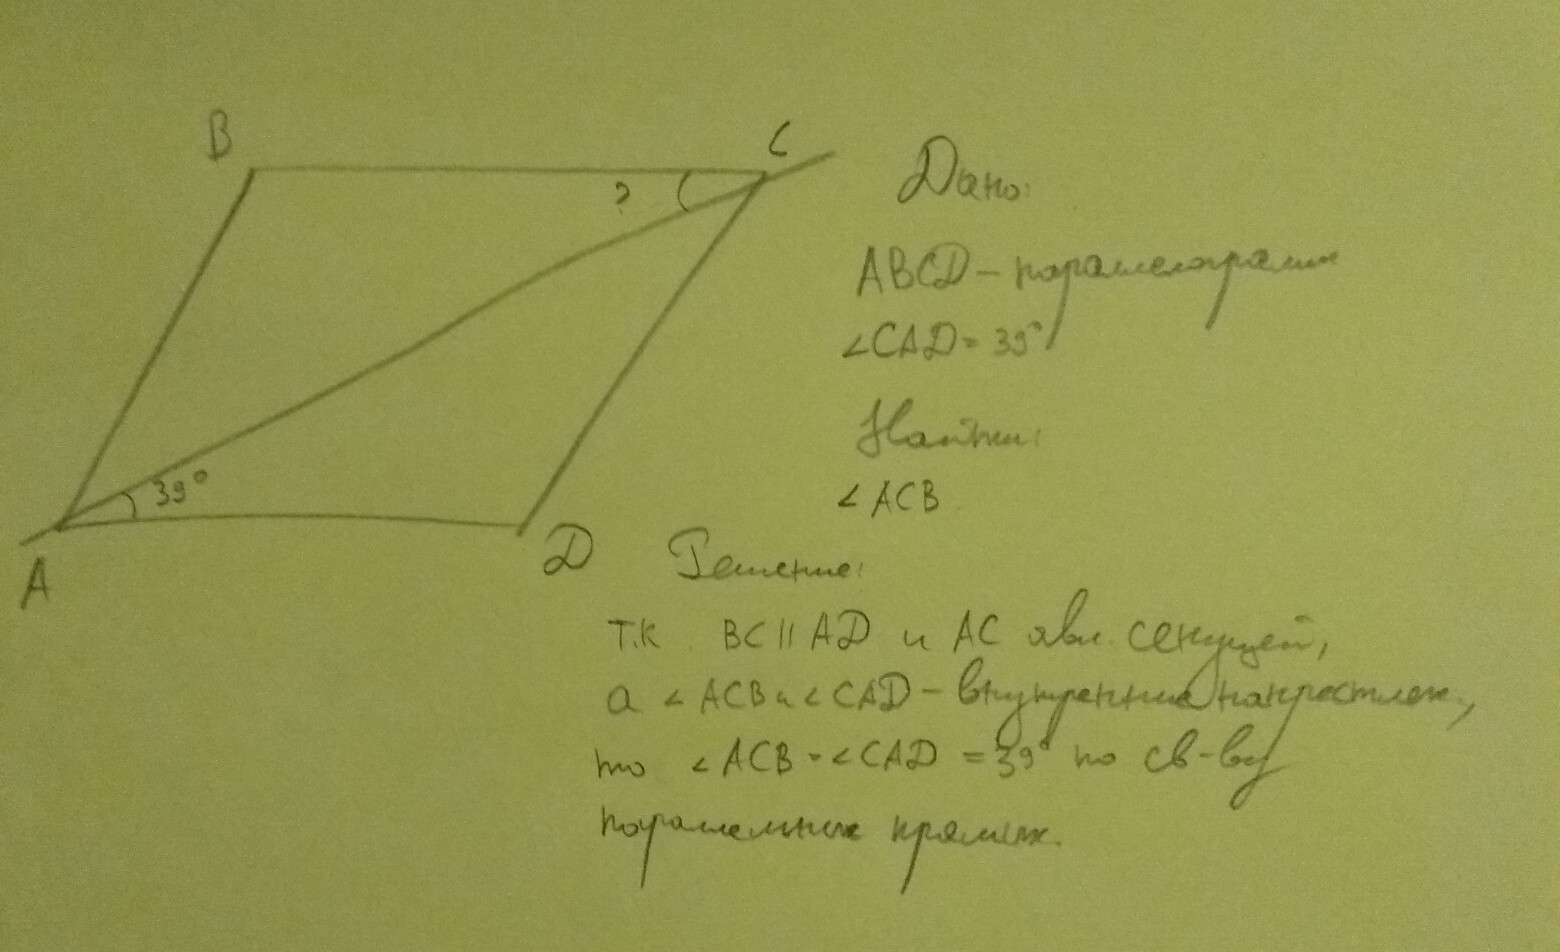 B
C
?
39°
A
D
Дано:
ABCD - параллелограмм
∠CAD = 39°
Найти:
∠ACB
Решение:
Т.К. BC || AD и AC явл. секущей,
а ∠ACB и ∠CAD - внутренние накрест леж.,
то ∠ACB = ∠CAD = 39° по св-ву
параллельных прямых.